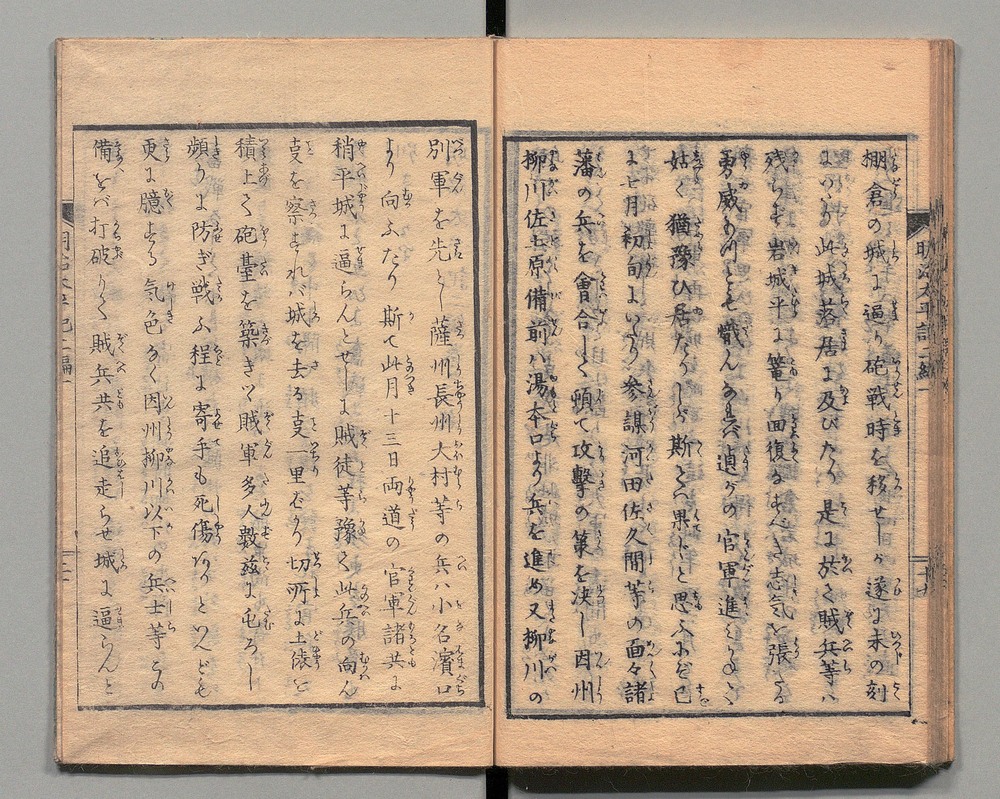 棚倉の城に逼り砲戦時を移せしが遂に未の刻
よのり此城落居に及びたり是に於て賊兵等ハ
残らず岩城平に篭り回復なすべき志気を張さる
勇威あれども熾んの兵遉がの官軍進
姑く猶豫ひ居たりしが斯てハ果じと思ふにぞ已
に七月初旬にいたり参謀河田佐久間等の面々諸
藩の兵を會合して頓て攻撃の策を決し因州
柳川佐土原備前ハ湯本口より兵を進め又柳川の
別軍を先とし薩州長州大村等の兵ハ小名濱口
より向ふたり斯て此月十三日両道の官軍諸共に
稍平城に逼らんとせしに賊徒等豫て此兵の向ん
亊を察すれバ城を去る亊一里ばかり切所に土俵を
積上て砲臺を築きツヽ賊軍多人數茲に屯ろし
頻りに防ぎ戦ふ程に寄手も死傷ありといへども
更に臆する気色なく因州柳川以下の兵士等その
備をバ打破りて賊兵共を追走らせ城に逼らんと
明治太平記二編